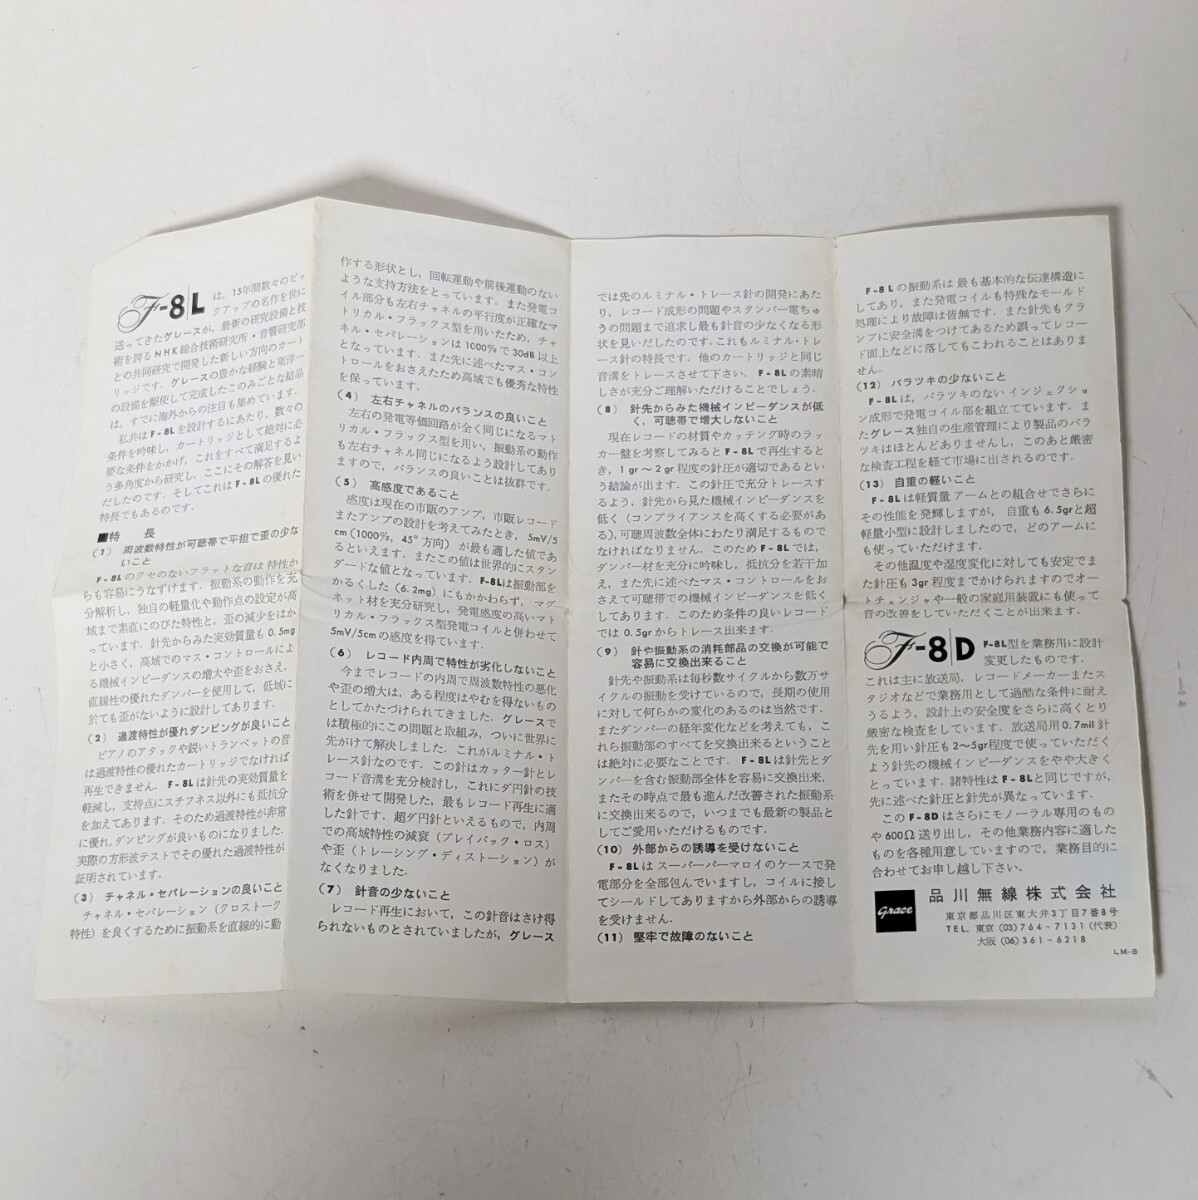 F-8L は、15年間数々のピッ
クアップの名作を世に
送ってきたグレースが、最新の研究設備と技
術を誇るNHK総合技術研究所・音響研究部
との共同研究で開発した新しい方向のカート
リッジです。グレースの豊かな経験と東洋一
の設備を駆使して完成したこのみごとな結晶
は、すでに海外からの注目も集めています。
私共はF-8Lを設計するにあたり、数々の
条件を吟味し、カートリッジとして絶対に必
要な条件をかかげ、これをすべて満足するよ
う多角度から研究し、ここにその解答を見い
だしたのです。そしてこれはF-8Lの優れた
特長でもあるのです。
■特 長
(1) 周波数特性が可聴帯で平担で歪の少な
いこと
F-8Lのクセのないフラットな音は特性か
らも容易にうなずけます。振動系の動作を充
分解析し、独自の軽量化や動作点の設定が高
域まで素直にのびた特性と、歪の減少をはか
っています。針先からみた実効質量も0.5mg
と小さく、高域でのマス・コントロールによ
る機械インピーダンスの増大や歪をおさえ、
直線性の優れたダンパーを使用して、低域に
於ても歪がないように設計してあります。
(2) 過渡特性が優れダンピングが良いこと
ピアノのアタックや鋭いトランペットの音
は過渡特性の優れたカートリッジでなければ
再生できません。F-8Lは針先の実効質量を
軽減し、支持点にスチフネス以外にも抵抗分
を加えてあります。そのため過渡特性が非常
に優れ、ダンピングが良いものになりました。
実際の方形波テストでその優れた過渡特性が
証明されています。
(3) チャネル・セパレーションの良いこと
チャネル・セパレーション（クロストーク
特性）を良くするために振動系を直線的に動
作する形状とし、回転運動や前後運動のない
ような支持方法をとっています。また発電コ
イル部分も左右チャネルの平行度が正確なマ
トリカル・フラックス型を用いたため、チャ
ネル・セパレーションは1000%で30dB以上
となっています。また先に述べたマス・コン
トロールをおさえたため高域でも優秀な特性
を保っています。
(4) 左右チャネルのバランスの良いこと
左右の発電等価回路が全く同じになるマト
リカル・フラックス型を用い、振動系の動作
も左右チャネル同じになるよう設計してあり
ますので、バランスの良いことは抜群です。
(5) 高感度であること
感度は現在の市販のアンプ、市販レコード
またアンプの設計を考えてみたとき、5mV/5
cm（1000%、45°方向）が最も適した値であ
るといえます。またこの値は世界的にスタン
ダードな値となっています。F-8Lは振動部を
かるくした（6.2mg）にもかかわらず、マグ
ネット材を充分研究し、発電感度の高いマト
リカル・フラックス型発電コイルと併わせて
5mV/5cmの感度を得ています。
(6) レコード内周で特性が劣化しないこと
今までレコードの内周で周波数特性の悪化
や歪の増大は、ある程度はやむを得ないもの
としてかたづけられてきました。グレースで
は積極的にこの問題と取組み、ついに世界に
先がけて解決しました。これがルミナル・ト
レース針なのです。この針はカッター針とレ
コード音溝を充分検討し、これにダ円針の技
術を併せて開発した、最もレコード再生に適
した針です。超ダ円針といえるもので、内周
での高域特性の減衰（プレイバック・ロス）
や歪（トレーシング・ディストーション）が
なくなりました。
(7) 針音の少ないこと
レコード再生において、この針音はさけ得
られないものとされていましたが、グレース
では先のルミナル・トレース針の開発にあた
り、レコード成形の問題やスタンパー電ちゅ
うの問題まで追求し最も針音の少なくなる形
状を見いだしたのです。これもルミナル・トレ
ース針の特長です。他のカートリッジと同じ
音溝をトレースさせて下さい。F-8Lの素晴
しさが充分ご理解いただけることでしょう。
(8) 針先からみた機械インピーダンスが低
く、可聴帯で増大しないこと
現在レコードの材質やカッテング時のラッ
カー盤を考察してみるとF-8Lで再生すると
き、1gr～2gr程度の針圧が適切であるとい
う結論が出ます。この針圧で充分トレースす
るよう、針先から見た機械インピーダンスを
低く（コンプライアンスを高くする必要があ
る）、可聴周波数全体にわたり満足するもので
なければなりません。このためF-8Lでは、
ダンパー材を充分に吟味し、抵抗分を若干加
え、また先に述べたマス・コントロールをお
さえて可聴帯での機械インピーダンスを低く
してあります。このため条件の良いレコード
では0.5grからトレース出来ます。
(9) 針や振動系の消耗部品の交換が可能で
容易に交換出来ること
針先や振動系は毎秒数サイクルから数万サ
イクルの振動を受けているので、長期の使用
に対して何らかの変化のあるのは当然です。
またダンパーの経年変化などを考えても、こ
れら振動部のすべてを交換出来るということ
は絶対に必要なことです。F-8Lは針先とダ
ンパーを含む振動部全体を容易に交換出来、
またその時点で最も進んだ改善された振動系
に交換出来るので、いつまでも最新の製品と
してご愛用いただけるものです。
(10) 外部からの誘導を受けないこと
F-8Lはスーパーパーマロイのケースで発
電部分を全部包んでいますし、コイルに接し
てシールドしてありますから外部からの誘導
を受けません。
(11) 堅牢で故障のないこと
F-8Lの振動系は最も基本的な伝達構造に
してあり、また発電コイルも特殊なモールド
処理により故障は皆無です。また針先もクラ
ンプに安全溝をつけてあるため誤ってレコー
ド面上などに落してもこわれることはありま
せん。
(12) バラツキの少ないこと
F-8Lは、バラツキのないインジェクショ
ン成形で発電コイル部を組立てています。ま
たグレース独自の生産管理により製品のバラ
ツキはほとんどありませんし、このあと厳密
な検査工程を経て市場に出されるのです。
(13) 自重の軽いこと
F-8Lは軽質量アームとの組合せでさらに
その性能を発輝しますが、自重も6.5grと超
軽量小型に設計しましたので、どのアームに
も使っていただけます。
その他温度や湿度変化に対しても安定でま
た針圧も3gr程度までかけられますのでオー
トチェンジャや一般の家庭用装置にも使って
音の改善をしていただくことが出来ます。
F-8D F-8L型を業務用に設計
変更したものです。
これは主に放送局、レコードメーカーまたス
タジオなどで業務用として過酷な条件に耐え
うるよう、設計上の安全度をさらに高くとり
厳密な検査をしています。放送局用0.7mil針
先を用い針圧も2～5gr程度で使っていただく
よう針先の機械インピーダンスをやや大きく
とっています。諸特性はF-8Lと同じですが、
先に述べた針圧と針先が異なっています。
このF-8Dはさらにモノーラル専用のもの
や600Ω送り出し、その他業務内容に適した
ものを各種用意していますので、業務目的に
合わせてお申し越し下さい。
Grace 品川無線株式会社
東京都品川区東大井3丁目7番8号
TEL. 東京 (03)764-7131 (代表)
大阪 (06)361-6218
LM-8